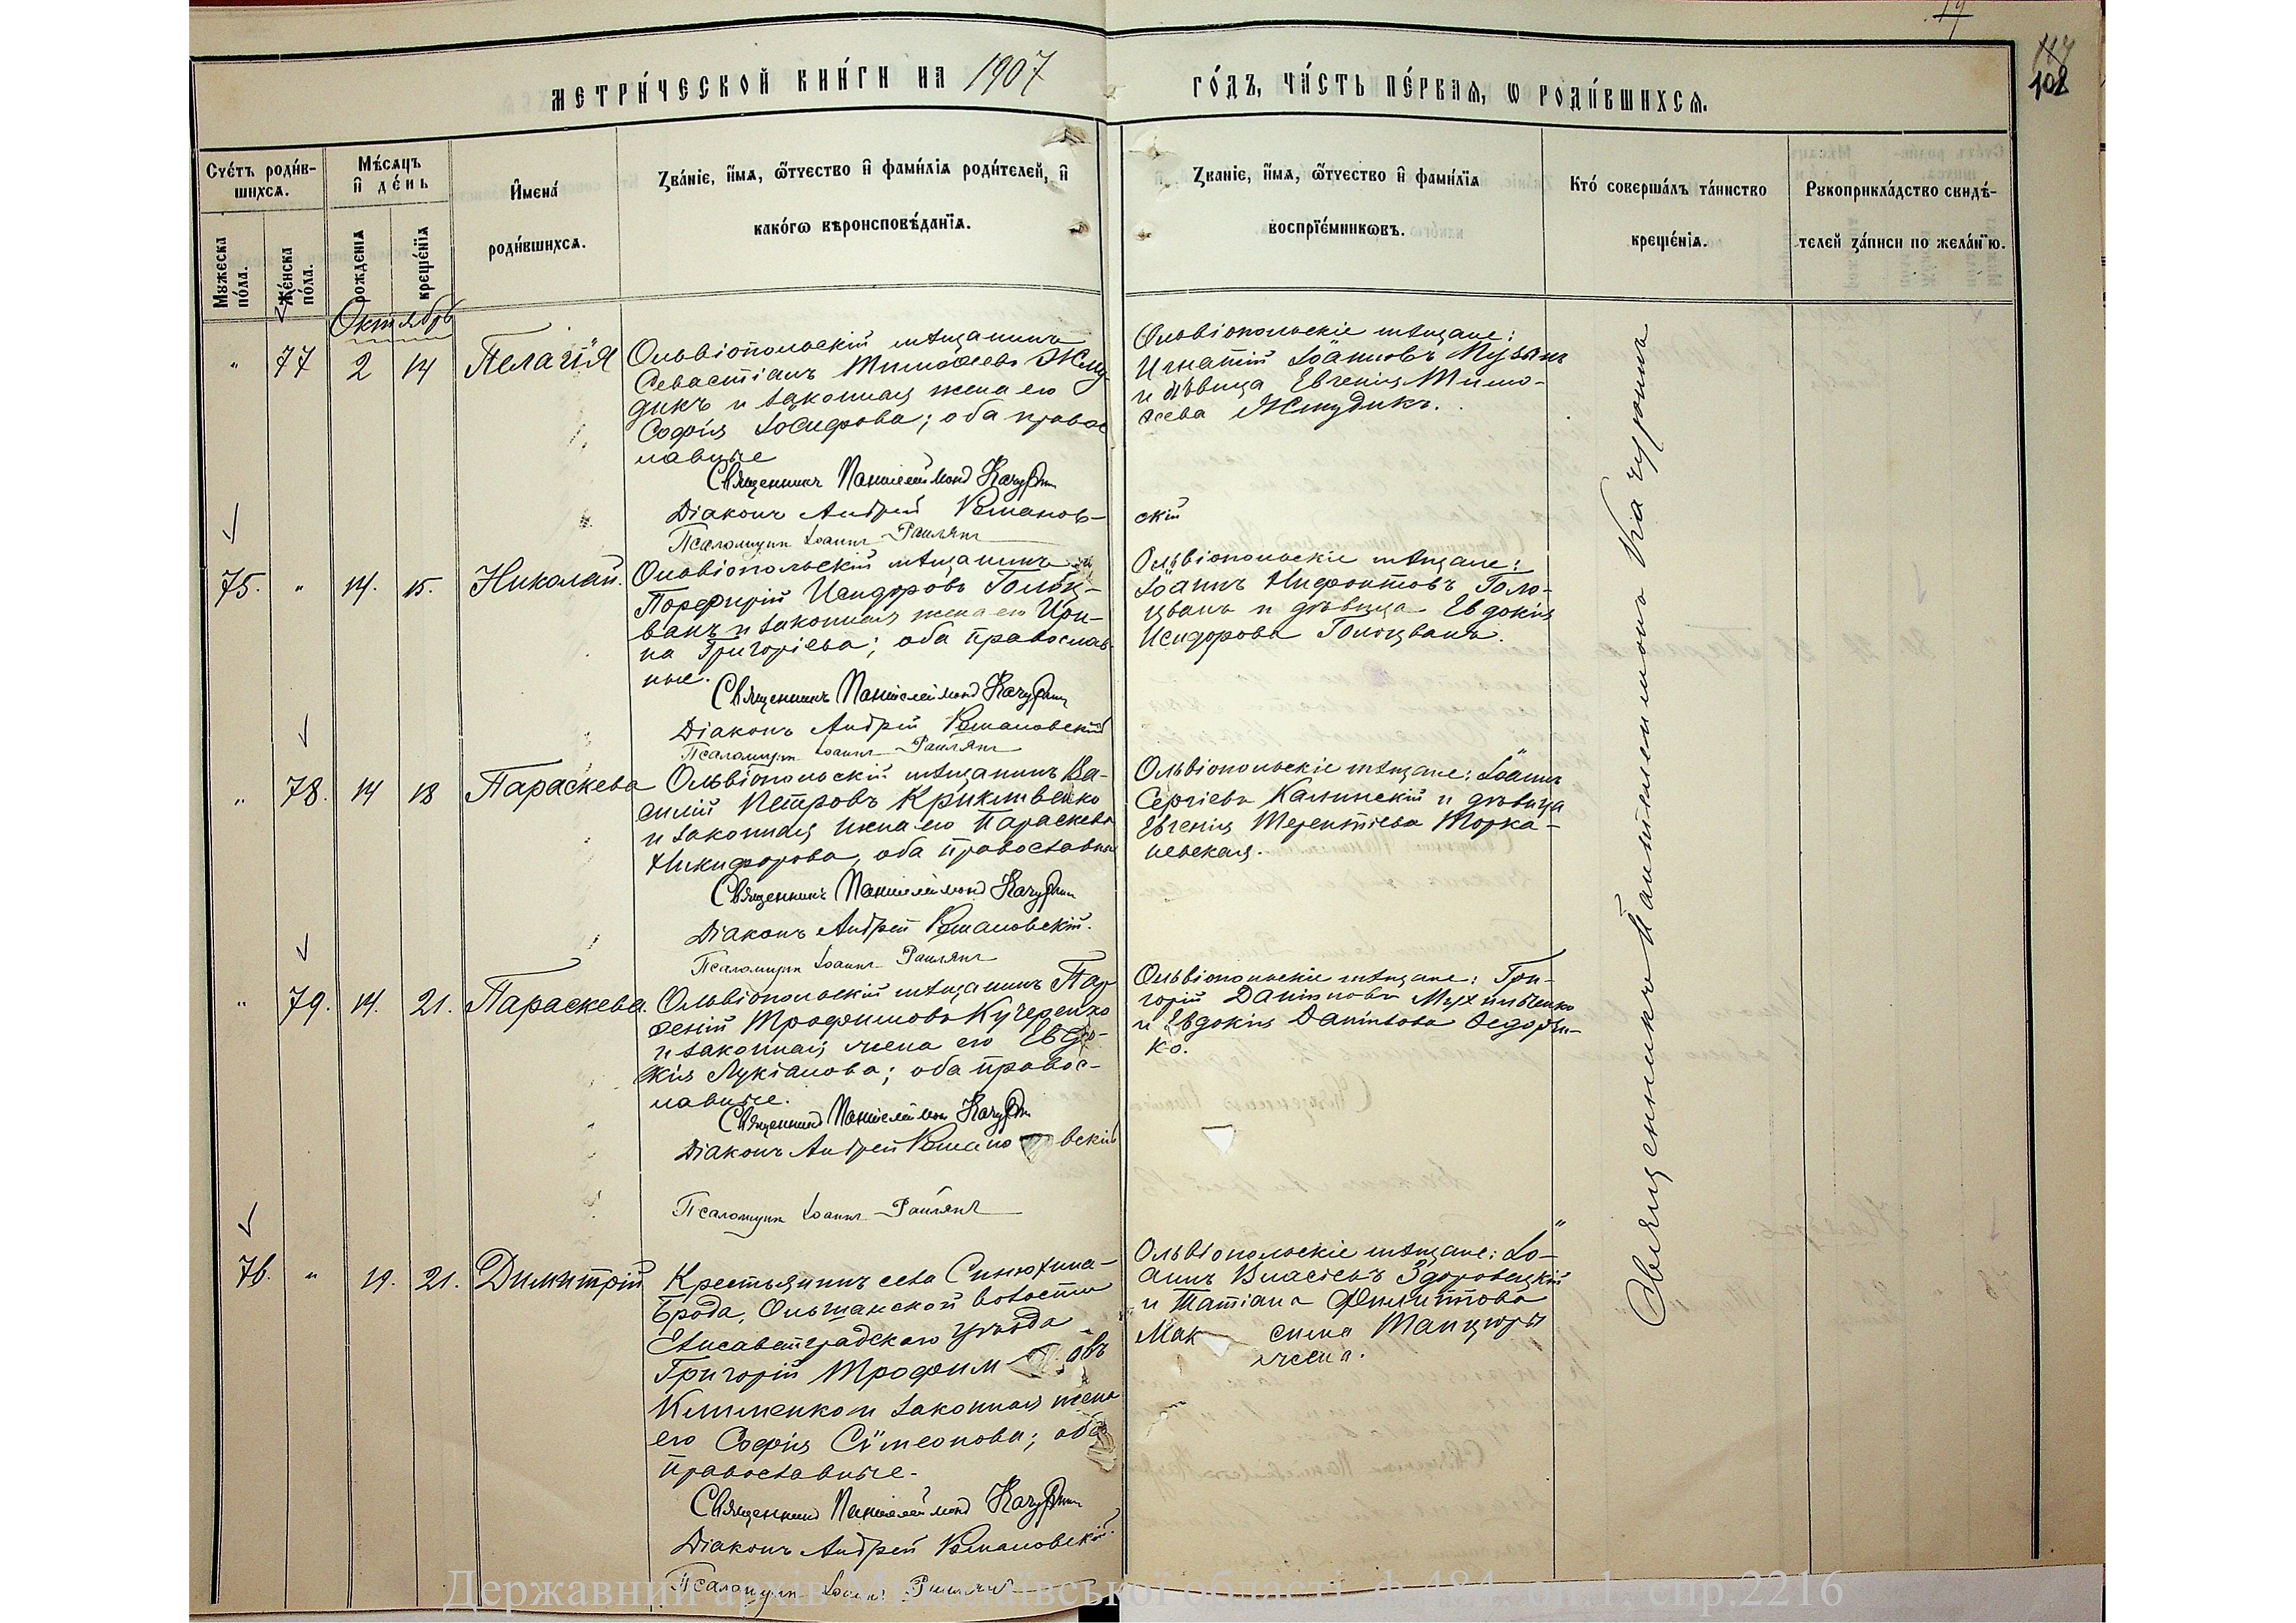 19
117
108
МЕТРИ́ЧЕСКОЙ КНИ́ГИ НА 1907
ГО́ДЪ, ЧА́СТЬ ПЕ́РВАѦ, Ѡ РОДИ́ВШИХСѦ.
Сче́тъ роди́в-
шихсѧ.
Мѣ́сѧцъ
и҆ де́нь
И҆мена̀
роди́вшихсѧ.
Зва́нїе, и҆́мѧ, ѻ҆́тчество и҆ фами́лїѧ роди́телей, и҆
како́гѡ вѣроисповѣ́данїѧ.
Зва́нїе, и҆́мѧ, ѻ҆́тчество и҆ фами́лїѧ
воспрїе́мникѡвъ.
Кто́ соверша́лъ та́инство
креще́нїѧ.
Рукоприкла́дство свидѣ́-
телей за́писи по жела́нїю.
Мужеска
по́ла.
Же́нска
по́ла.
рожденїѧ
креще́нїѧ
Октябрь
" 77 2 14 Пелагія
Ольвіопольскій мѣщанинъ
Севастіанъ Тимоѳеевъ Жму
дикъ и законная жена его
Софія Іосифова; оба правос
лавные
Священникъ Пантелеимонъ Качурин
Діаконъ Андрей Романов-
Псаломщик Іоаннъ Раилянъ
Ольвіопольскіе мѣщане:
Игнатій Іоанновъ Музыкъ
и дѣвица Евгенія Тимо-
ѳеева Жмудикъ.
скій
75. " 14. 15. Николай.
Ольвіопольскій мѣщанинъ
Порфирій Исидоровъ Голоц-
ванъ и законная жена его Ири-
на Григоріева; оба православ-
ные.
Священникъ Пантелеимонъ Качурин
Діаконъ Андрей Романовскій
Псаломщик Іоаннъ Раилянъ
Ольвіопольскіе мѣщане:
Іоаннъ Нифонтовъ Голо-
цванъ и дѣвица Евдокія
Исидорова Голоцванъ.
" 78. 14 18 Параскева
Ольвіопольскій мѣщанинъ Ва-
силій Петровъ
и законная жена его Параскева
Никифорова, оба православные
Священникъ Пантелеимонъ Качурин
Діаконъ Андрей Романовскій.
Псаломщик Іоаннъ Раилянъ
Ольвіопольскіе мѣщане: Іоаннъ
Сергіевъ Калинскій и дѣвица
Евгенія Терентіева Торка-
невская.
" 79. 14. 21. Параскева.
Ольвіопольскій мѣщанинъ Пар
ѳеній Трофимовъ Кучеренко
и законная жена его Евдо-
кія Лукіанова; оба правос-
лавные.
Священникъ Пантелеимонъ Качурин
Діаконъ Андрей Романовскій
Псаломщик Іоаннъ Раилянъ
Ольвіопольскіе мѣщане: Гри-
горій Данииловъ
и Евдокія Даниилова Ѳедорен-
ко.
76. " 19. 21. Димитрій
Крестьянинъ села Синюхина-
Брода, Ольшанской волости
Елисаветградскаго уѣзда
Григорій Трофимовъ
Клименко и законная жена
его Софія Симеонова; оба
православные.
Священникъ Пантелеимонъ Качурин
Діаконъ Андрей Романовскій.
Псаломщик Іоаннъ Раилянъ
Ольвіопольскіе мѣщане: Іо-
аннъ Власіевъ Здоровецкій
и Татіана Филиппова
Максима Танцюры
жена.
Священникъ Пантелеимонъ Качуринъ
Державний архів Миколаївської області, ф.484, оп.1, спр.2216